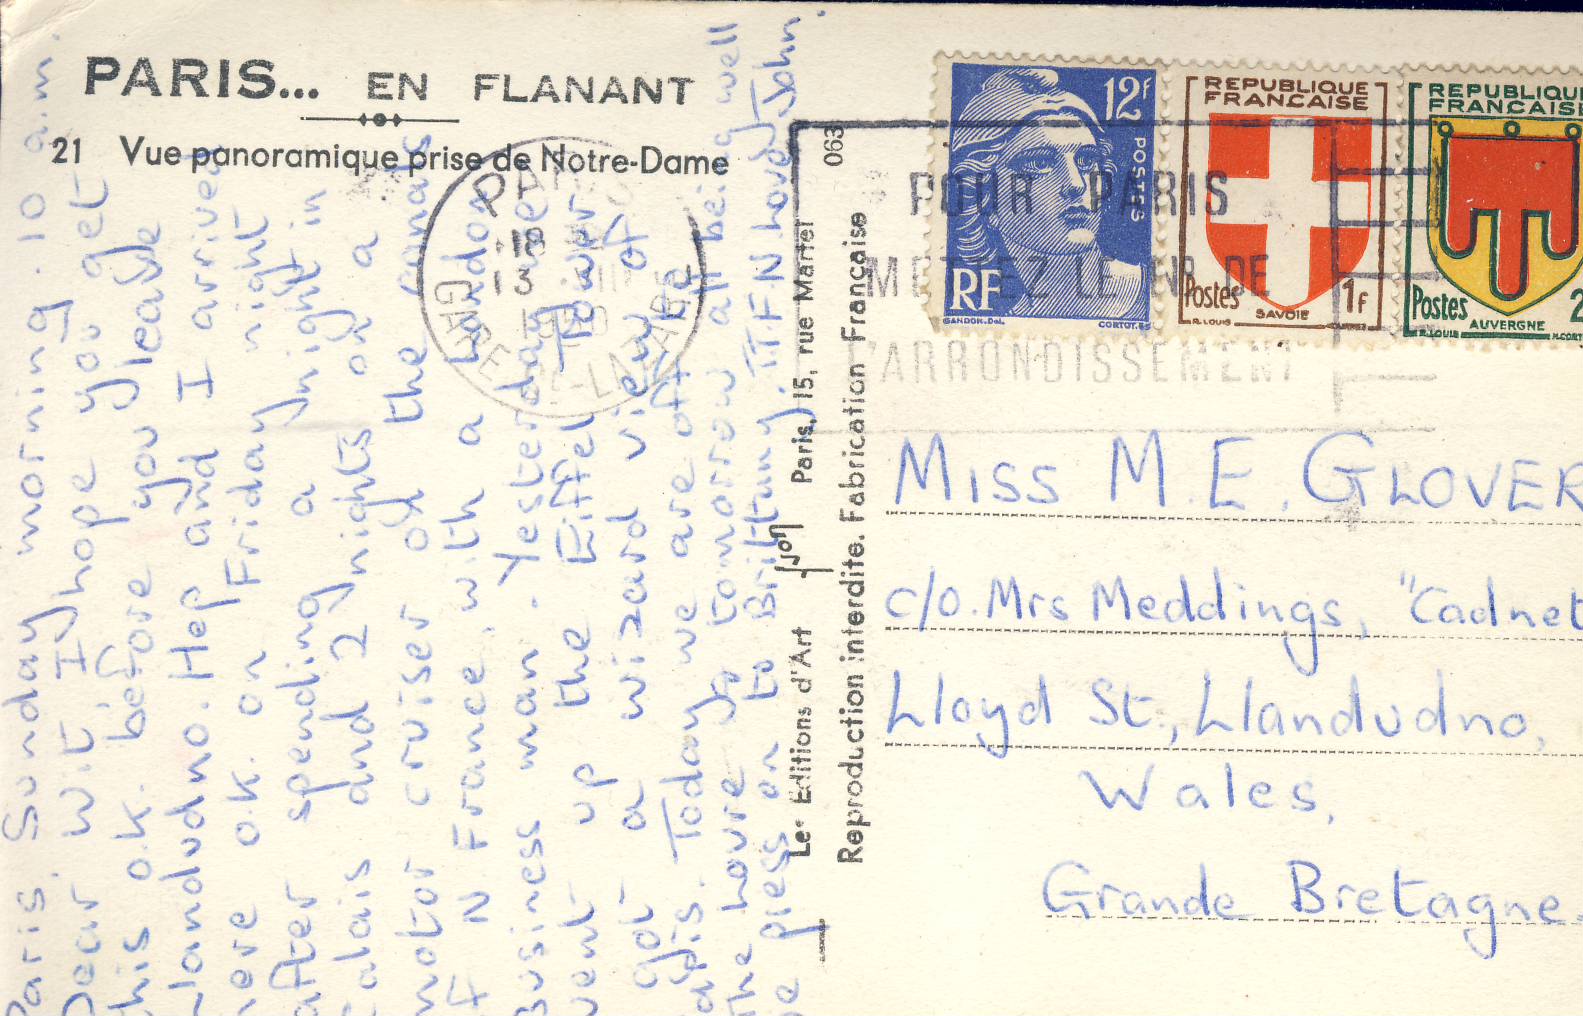 PARIS... EN FLANANT
21 Vue panoramique prise de Notre-Dame
Paris. Sunday morning. 10 a.m.
Dear Wit, I hope you get
this o.k. before you leave
Llandudno. Hep and I arrived
here o.k. on Friday night
after spending a night in
Calais and 2 nights on a
motor cruiser on the canals
of N France, with a London
Business man. Yesterday
went up the Eiffel Tower
got a wizard view of
Paris. Today we are off to
The Louvre & tomorrow all being well
we press on to Brittany. TTFN Love John.
Les Editions d'Art Yvon Paris, 15, rue Martel
Reproduction interdite. Fabrication Française
063
PARIS
18
13
1950
GARE St-LAZARE
POUR PARIS
METTEZ LE N° DE
L'ARRONDISSEMENT
12F
POSTES
RF
GANDON.Del.
CORTOT.
REPUBLIQUE
FRANCAISE
Postes
1F
R.LOUIS
SAVOIE
REPUBLIQUE
FRANCAISE
Postes
2
R.LOUIS
AUVERGNE
MISS M. E. GLOVER
c/o. Mrs Meddings, "Cadnet
Lloyd St., Llandudno,
Wales,
Grande Bretagne.